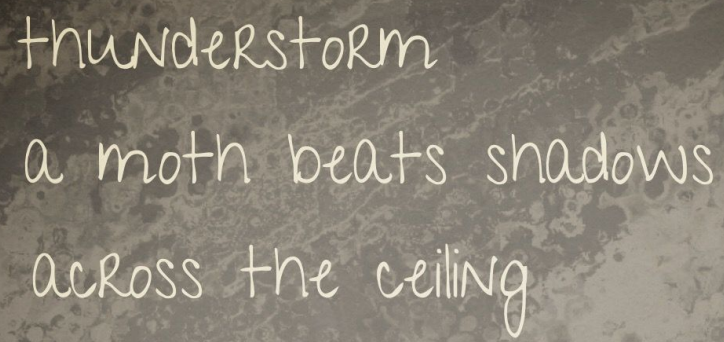 thunderstorm
a moth beats shadows
across the ceiling